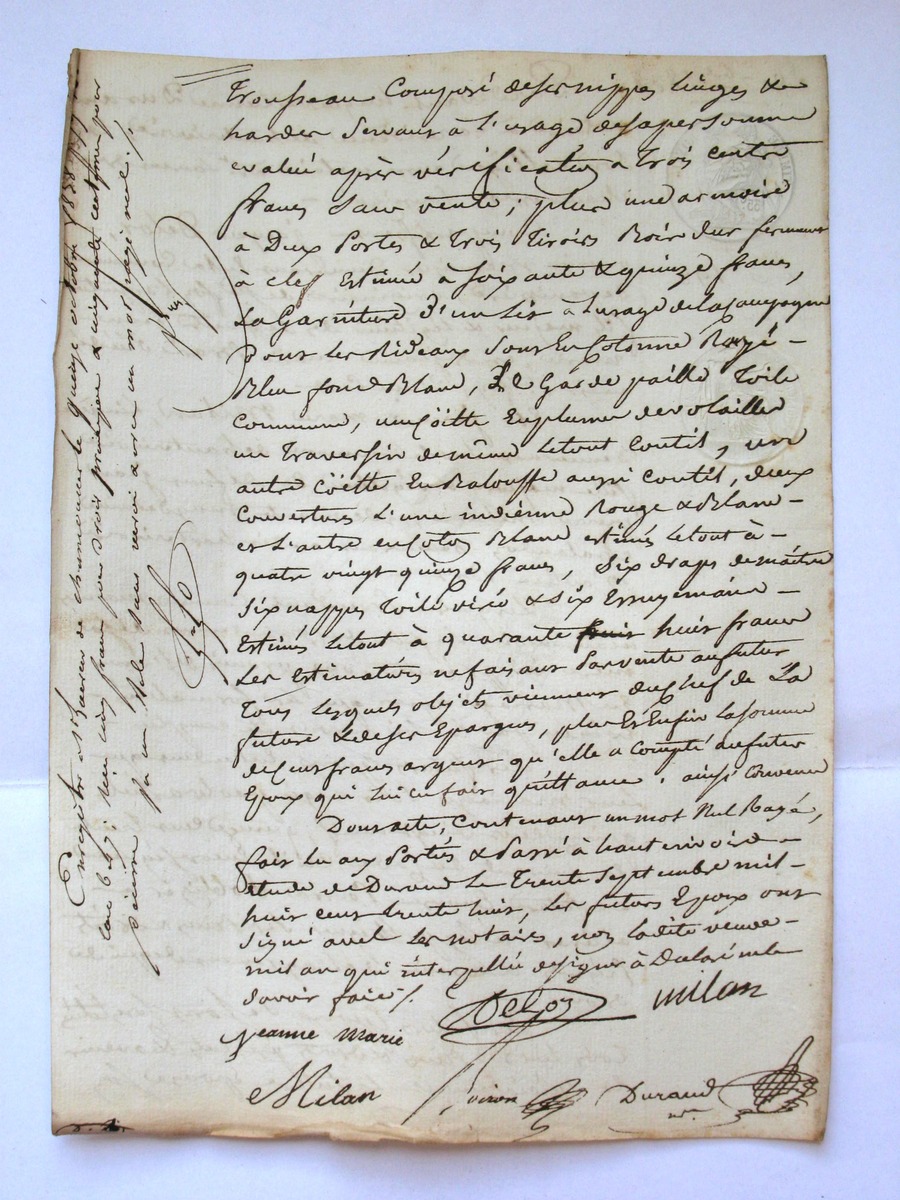 Trousseau Composé de ses nippes linges &
hardes Servant à l'usage de sa personne
evalué après vérification a Trois cents
francs Sans vente; plus une armoire
à Deux Portes & Trois Tiroirs Bois dur fermant
à clef Estimée à Soixante & quinze francs,
La Garniture d'un Lit à L'usage de la Campagne
pour Les Rideaux Sont En Cotonne Rayé
Bleu fond Blanc, Le Garde paille Toile
Commune, un Coëtte En plume de volailles
un Traversin de même Le tout Coutil, un
autre Coëtte En Balouffe aussi Coutil, deux
Couvertures L'une indiénne Rouge & Blanc
et L'autre en Coton Blanc estimés Le tout à
quatre vingt quinze francs, Six draps de maître
Six nappes Toile & Six Essuyemains
Estimés Le tout à quarante huit francs
Les Estimations ne faisant Pas vente au futur
Tous Lesquels objets viennent du chef de La
future & de ses Epargnes, plus Et Enfin La Somme
de Cent francs argent qu'elle a Compté au futur
Epoux qui lui en fait quittance. ainsi Convenu
Dont acte, Contenant un mot Nul Rayé,
fait Lu aux Parties & Passé à hauterivoire
étude de Durand Le Trente Septembre mil
huit cent trente huit, Les futurs Epoux ont
Signé avec Les notaires, non La dite veuve
milan qui interpellée de signer à Declaré ne le
Savoir faire /.
Deloy milan
Jeanne Marie
Milan
Durand
Enregistré à St Laurent de Chamousset le quinze octobre 1838
cinq francs pour droit principal & cinquante centimes pour
dixième un mot rayé nul /.